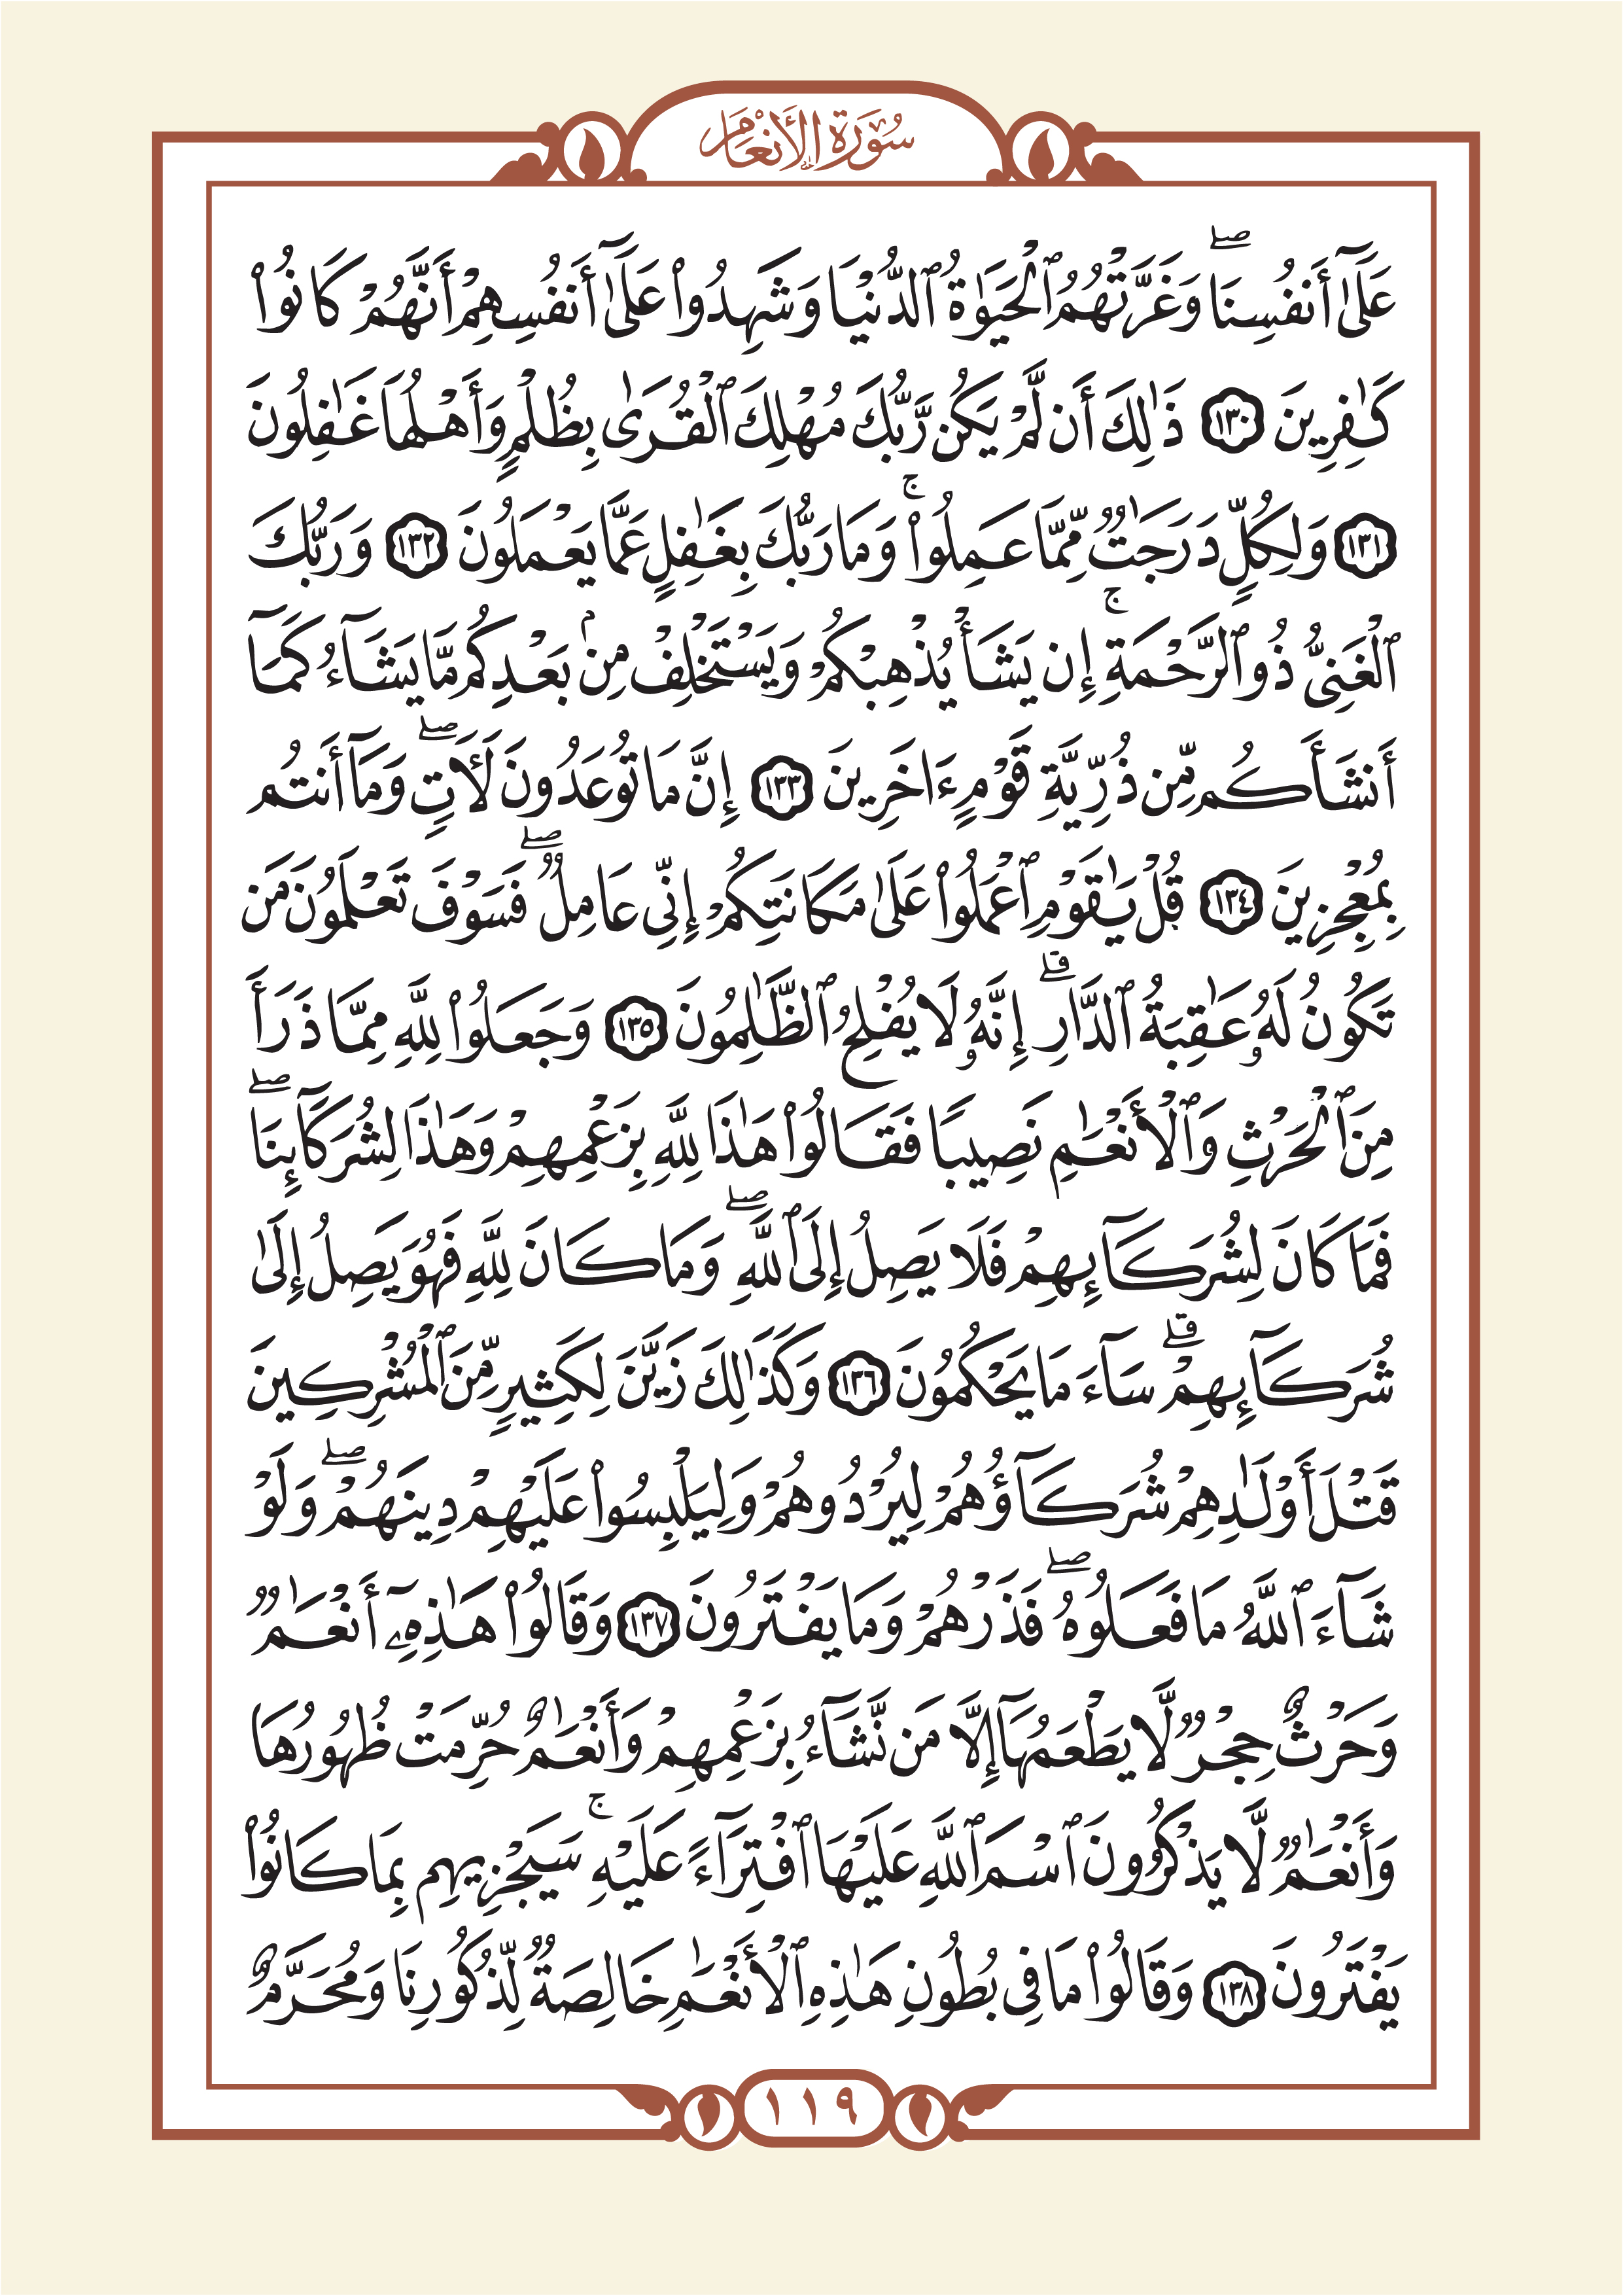 سُورَةُ الأَنْعَامِ
عَلَىٰٓ أَنفُسِنَا ۖ وَغَرَّتْهُمُ ٱلْحَيَوٰةُ ٱلدُّنْيَا وَشَهِدُوا۟ عَلَىٰٓ أَنفُسِهِمْ أَنَّهُمْ كَانُوا۟
كَـٰفِرِينَ ١٣٠ ذَٰلِكَ أَن لَّمْ يَكُن رَّبُّكَ مُهْلِكَ ٱلْقُرَىٰ بِظُلْمٍ وَأَهْلُهَا غَـٰفِلُونَ
١٣١ وَلِكُلٍّ دَرَجَـٰتٌ مِّمَّا عَمِلُوا۟ ۚ وَمَا رَبُّكَ بِغَـٰفِلٍ عَمَّا يَعْمَلُونَ ١٣٢ وَرَبُّكَ
ٱلْغَنِىُّ ذُو ٱلرَّحْمَةِ ۚ إِن يَشَأْ يُذْهِبْكُمْ وَيَسْتَخْلِفْ مِنۢ بَعْدِكُم مَّا يَشَآءُ كَمَآ
أَنشَأَكُم مِّن ذُرِّيَّةِ قَوْمٍ ءَاخَرِينَ ١٣٣ إِنَّ مَا تُوعَدُونَ لَـَٔاتٍ ۖ وَمَآ أَنتُم
بِمُعْجِزِينَ ١٣٤ قُلْ يَـٰقَوْمِ ٱعْمَلُوا۟ عَلَىٰ مَكَانَتِكُمْ إِنِّى عَامِلٌ ۖ فَسَوْفَ تَعْلَمُونَ مَن
تَكُونُ لَهُۥ عَـٰقِبَةُ ٱلدَّارِ ۗ إِنَّهُۥ لَا يُفْلِحُ ٱلظَّـٰلِمُونَ ١٣٥ وَجَعَلُوا۟ لِلَّهِ مِمَّا ذَرَأَ
مِنَ ٱلْحَرْثِ وَٱلْأَنْعَـٰمِ نَصِيبًا فَقَالُوا۟ هَـٰذَا لِلَّهِ بِزَعْمِهِمْ وَهَـٰذَا لِشُرَكَآئِنَا ۖ
فَمَا كَانَ لِشُرَكَآئِهِمْ فَلَا يَصِلُ إِلَى ٱللَّهِ ۖ وَمَا كَانَ لِلَّهِ فَهُوَ يَصِلُ إِلَىٰ
شُرَكَآئِهِمْ ۗ سَآءَ مَا يَحْكُمُونَ ١٣٦ وَكَذَٰلِكَ زَيَّنَ لِكَثِيرٍ مِّنَ ٱلْمُشْرِكِينَ
قَتْلَ أَوْلَـٰدِهِمْ شُرَكَآؤُهُمْ لِيُرْدُوهُمْ وَلِيَلْبِسُوا۟ عَلَيْهِمْ دِينَهُمْ ۖ وَلَوْ
شَآءَ ٱللَّهُ مَا فَعَلُوهُ ۖ فَذَرْهُمْ وَمَا يَفْتَرُونَ ١٣٧ وَقَالُوا۟ هَـٰذِهِۦٓ أَنْعَـٰمٌ
وَحَرْثٌ حِجْرٌ لَّا يَطْعَمُهَآ إِلَّا مَن نَّشَآءُ بِزَعْمِهِمْ وَأَنْعَـٰمٌ حُرِّمَتْ ظُهُورُهَا
وَأَنْعَـٰمٌ لَّا يَذْكُرُونَ ٱسْمَ ٱللَّهِ عَلَيْهَا ٱفْتِرَآءً عَلَيْهِ ۚ سَيَجْزِيهِم بِمَا كَانُوا۟
يَفْتَرُونَ ١٣٨ وَقَالُوا۟ مَا فِى بُطُونِ هَـٰذِهِ ٱلْأَنْعَـٰمِ خَالِصَةٌ لِّذُكُورِنَا وَمُحَرَّمٌ
١١٩